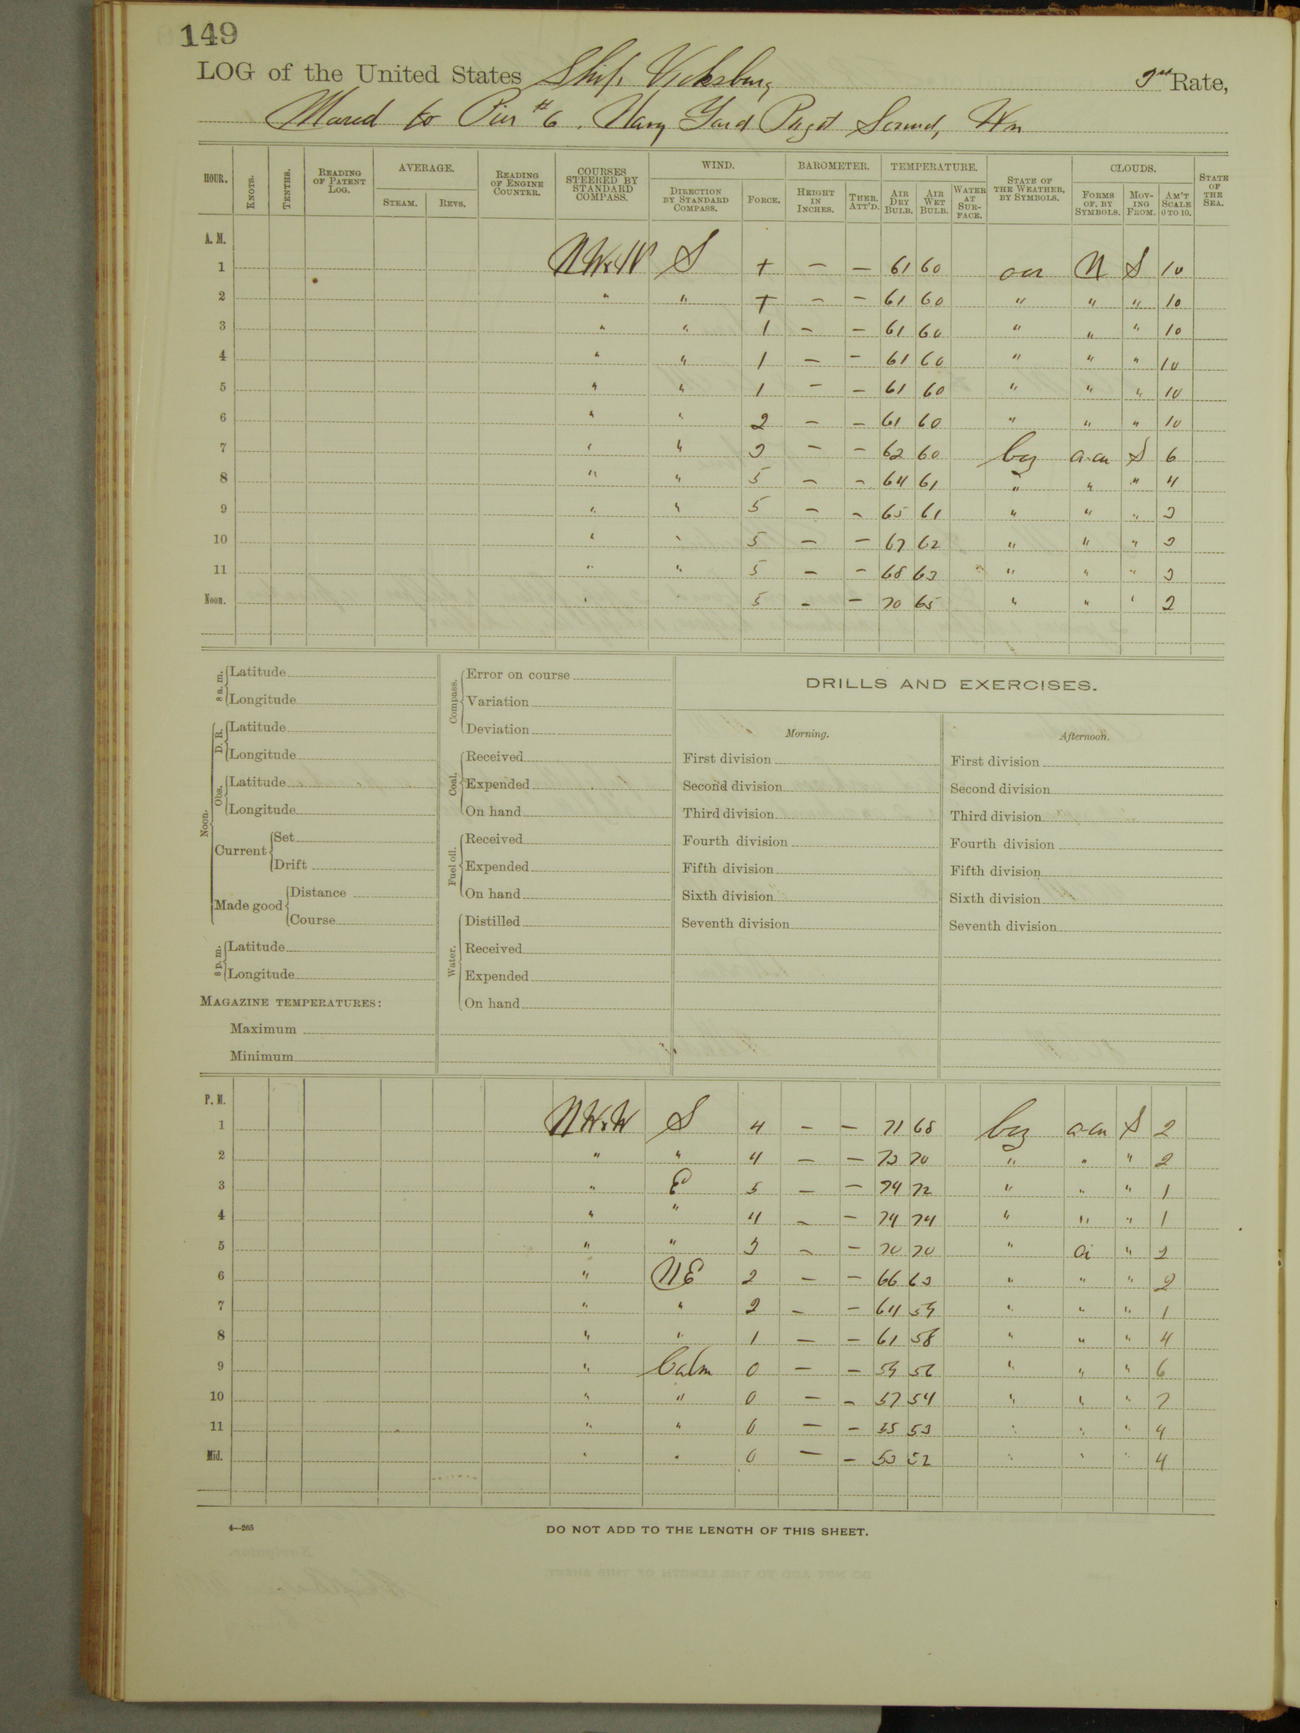 149
LOG of the United States Ship Vicksburg 3rd Rate,
Moored to Pier #6, Navy Yard Puget Sound, Wn
HOUR. KNOTS. TENTHS. READING OF PATENT LOG. AVERAGE. STEAM. REVS. READING OF ENGINE COUNTER. COURSES STEERED BY STANDARD COMPASS. WIND. DIRECTION BY STANDARD COMPASS. FORCE. BAROMETER. HEIGHT IN INCHES. THER. ATT'D. TEMPERATURE. AIR DRY BULB. AIR WET BULB. WATER AT SURFACE. STATE OF THE WEATHER, BY SYMBOLS. CLOUDS. FORMS OF, BY SYMBOLS. MOVING FROM. AM'T SCALE 0 TO 10. STATE OF THE SEA.
A. M.
1 NWxW S + – – 61 60 N S 10
2 " " + – – 61 60 " " " 10
3 " " 1 – – 61 60 " " " 10
4 " " 1 – – 61 60 " " " 10
5 " " 1 – – 61 60 " " " 10
6 " " 2 – – 61 60 " " " 10
7 " " 3 – – 62 60 bcz a-cu S 6
8 " " 5 – – 64 61 " " " 4
9 " " 5 – – 65 61 " " " 3
10 " " 5 – – 67 62 " " " 3
11 " " 5 – – 68 63 " " " 3
Noon. " 5 – – 70 65 " " " 2
8 a. m. Latitude
Longitude
Noon.
D. R. Latitude
Longitude
Obs. Latitude
Longitude
Current Set
Drift
Made good Distance
Course
8 p. m. Latitude
Longitude
MAGAZINE TEMPERATURES:
Maximum
Minimum
Compass. Error on course
Variation
Deviation
Coal. Received
Expended
On hand
Fuel oil. Received
Expended
On hand
Water. Distilled
Received
Expended
On hand
DRILLS AND EXERCISES.
Morning.
First division
Second division
Third division
Fourth division
Fifth division
Sixth division
Seventh division
Afternoon.
First division
Second division
Third division
Fourth division
Fifth division
Sixth division
Seventh division
P. M.
1 NWxW S 4 – – 71 68 bcz a-cu S 2
2 " " 4 – – 73 70 " " " 2
3 " E 5 – – 74 72 " " " 1
4 " " 4 – – 74 74 " " " 1
5 " " 3 – – 70 70 " Ci " 2
6 " NE 2 – – 66 63 " " " 2
7 " " 2 – – 64 59 " " " 1
8 " " 1 – – 61 58 " " " 4
9 " Calm 0 – – 59 56 " " " 6
10 " " 0 – – 57 54 " " " 7
11 " " 0 – – 55 53 " " " 4
Mid. " " 0 – – 53 52 " " " 4
4—265
DO NOT ADD TO THE LENGTH OF THIS SHEET.